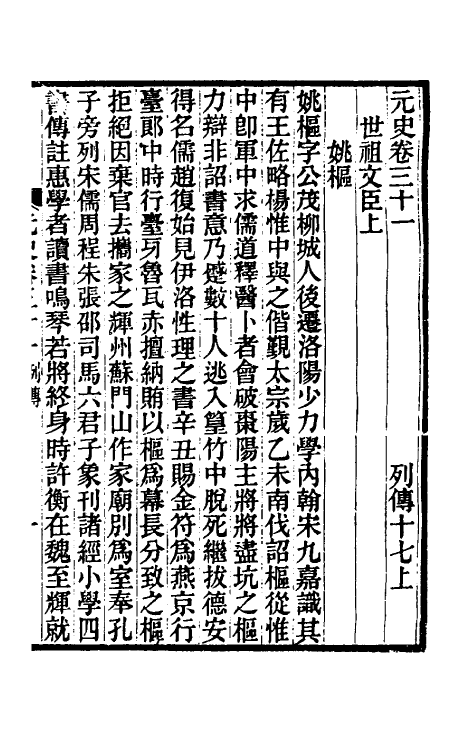 元史卷三十一 列傳十七上
世祖文臣上
姚樞
姚樞字公茂柳城人後遷洛陽少力學內翰宋九嘉識其
有王佐略楊惟中與之偕覲太宗歲乙未南伐詔樞從惟
中卽軍中求儒道釋醫卜者會破棗陽主將將盡坑之樞
力辯非詔書意乃蹙數十人逃入篁竹中脫死繼拔德安
得名儒趙復始見伊洛性理之書辛丑賜金符爲燕京行
臺郎中時行臺牙魯瓦赤擅納賄以樞爲幕長分致之樞
拒絕因棄官去攜家之輝州蘇門山作家廟別爲室奉孔
子旁列宋儒周程朱張邵司馬六君子象刊諸經小學四
書傳註惠學者讀書鳴琴若將終身時許衡在魏至輝就
元史卷三十一 列傳 一